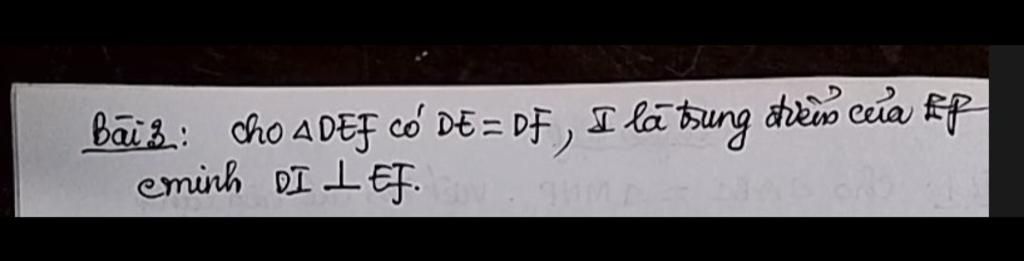 Bài 3: Cho △DEF có DE = DF, I là trung điểm của EF
cminh DI ⊥ EF.